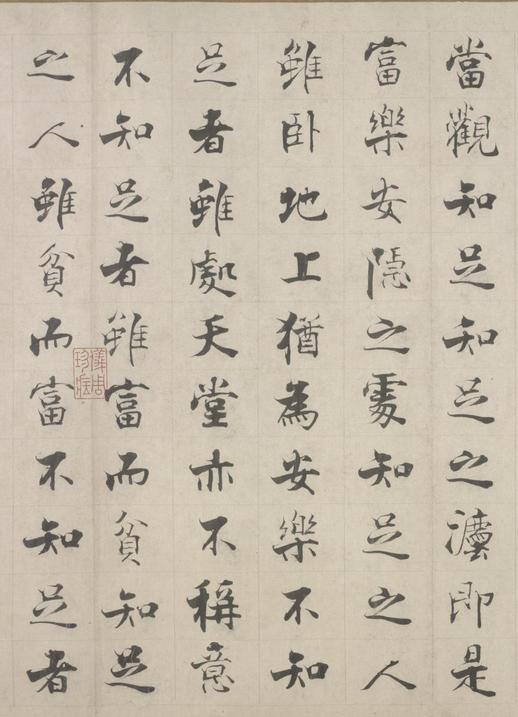 當觀知足知足之灋即是
富樂安隱之處知足之人
雖卧地上猶為安樂不知
足者雖處天堂亦不稱意
不知足者雖富而貧知足
之人雖貧而富不知足者